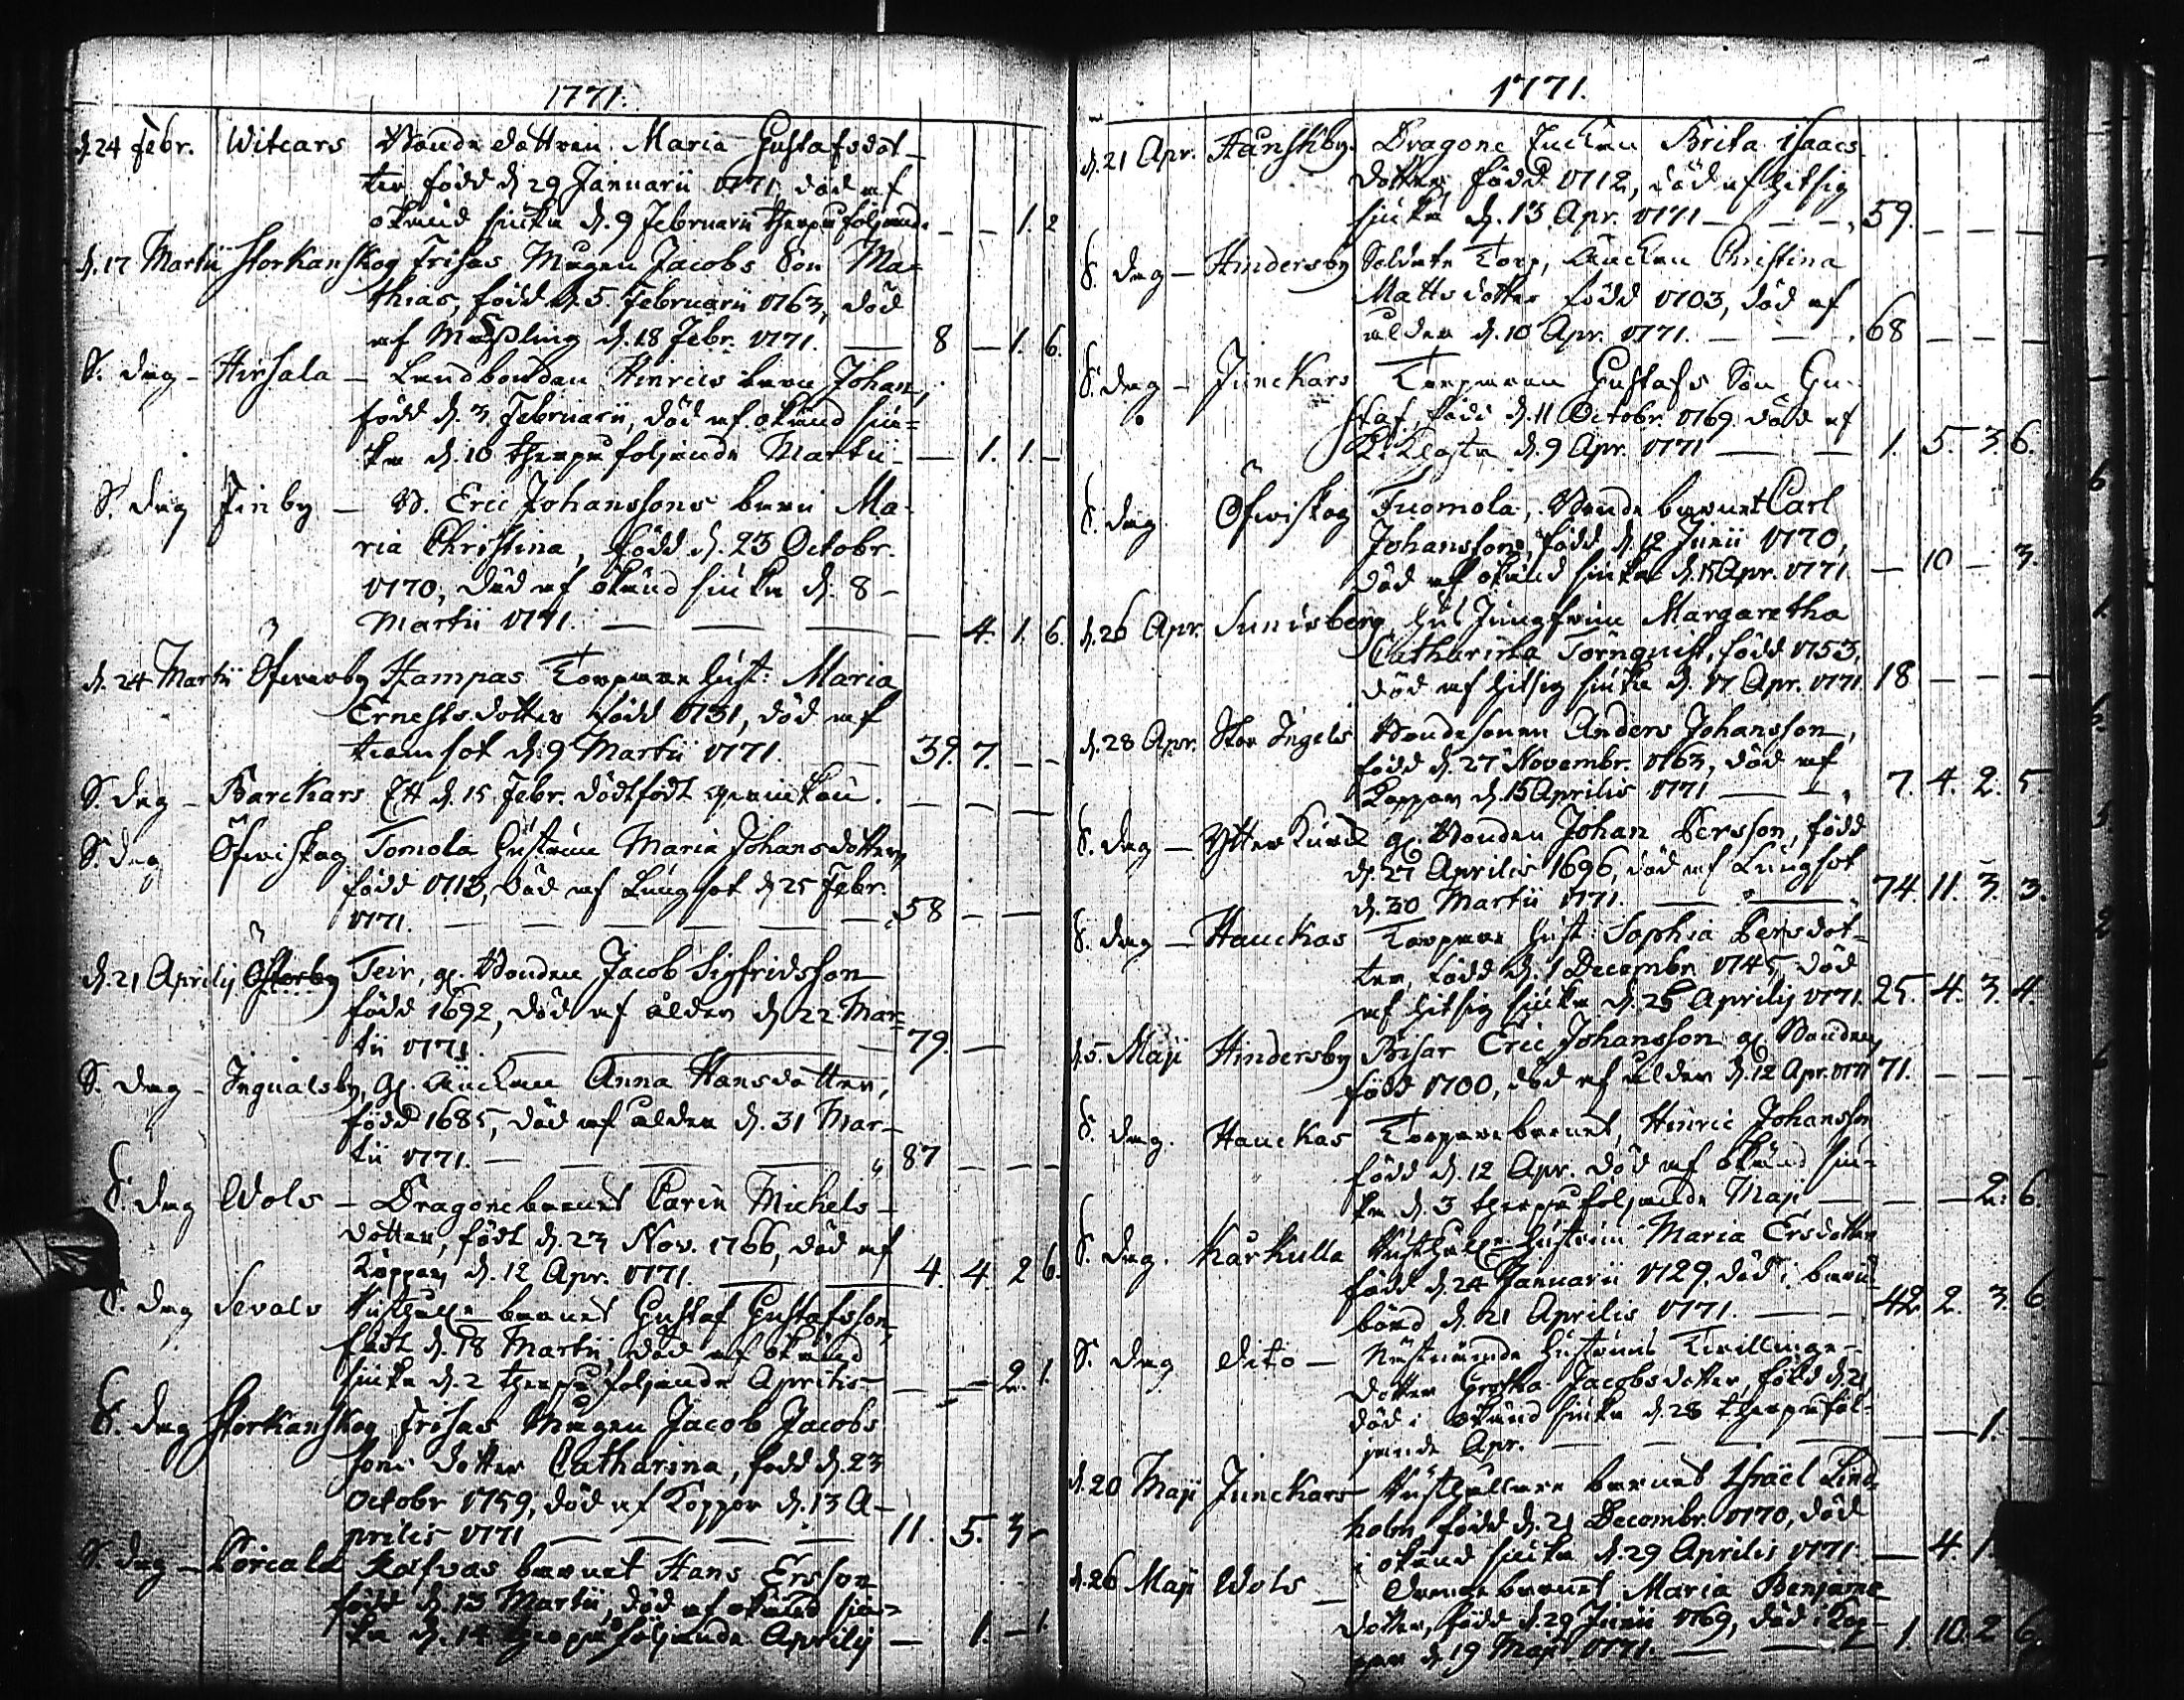 1771.
d. 24 Febr. Witcars Bonde dottren Maria Gustafsdot-
ter född d 29 Januarii 1771 död af
okänd siuka d. 9 Februarii therpå följande — — 1. 2
d. 17 Martii Storkanskog Frisas Mågen Jacobs Son Ma-
thias, född d. 5. Februarii 1763, död
af Mässling d. 18 Febr. 1771. — 8 — 1. 6.
S. dag — Hirsala — Landbonden Hinrics barn Johan,
född d. 3 Februarii, död af okänd siu-
ka d. 10 therpå följande Martii — — 1. 1. —
S. dag Finby — B. Eric Johanssons barn Ma-
ria Christina, född d. 23 Octobr.
1770, död af okänd siuka d. 8
Martii 1771. — — — — 4. 1. 6.
d. 24 Martii Öfverby Kampas Torpare hust: Maria
Ernestsdotter född 1731, död af
d. 9 Martii 1771. — 39. 7. — —
S. dag — Barckars Ett d. 15 Febr. dödfödt qvinkön. — — —
S. dag Öfwiskog Tomola hustrun Maria Johansdotter,
född 1713, död af Lungsot d 25 Febr.
1771. — — — — — 58 — —
d. 21 Aprilis Österby Teir, gl. Bonden Jacob Sigfridsson
född 1692, död af ålder d 22 Mar-
tii 1771. — — — 79. —
S. dag — Ingvalsby, gl. Änckan Anna Hansdotter,
född 1685, död af ålder d. 31 Mar-
tii 1771. — — — — 87 — — —
S. dag Wols — Dragonebarnet Carin Michels-
dotter, född d. 23 Nov. 1766, död af
Koppor d. 12 Apr. 1771. — — 4. 4. 2 6.
S. dag Sevals barnet Gustaf Gustafsson,
född d. 18 Martii, död af okänd
siuka d. 2 therpå följande Aprilis — — — 2. 1.
S. dag Storkanskog Frisas Mågen Jacob Jacobs
sons dotter Catharina, född d. 23
Octobr 1759, död af Koppor d. 13 A-
prilis 1771 — — — — 11. 5. 3 —
S. dag — Porcala Rafvas barnet Hans Ersson
född d. 13 Martii, död af okänd siu-
ka d. 14 therpå följande Aprilis — 1. — 1.
1771.
d. 21 Apr. Hanskby. Dragone Enckan Brita Isaacs
dotter, född 1712, död af hitsig
siuka d. 13 Apr. 1771 — — — 59. — — —
S. dag — Hindersby Soldate Torp, Änckan Christina
Mattsdotter född 1703, död af
ålder d. 10 Apr. 1771. — — 68 — — —
S. dag — Junckars Torparen Gustafs Son Gu-
staf, född d. 11 Octobr. 1769 död af
d. 9 Apr. 1771 — — 1. 5. 3. 6.
S. dag. Öfwiskog Tuomola, Bonde barnet Carl
Johansson, född d. 12 Junii 1770,
död af okänd siuka d. 15 Apr. 1771 — 10 — 3.
d. 26 Apr. Sunirsberg, Jungfrun Margaretha
Catharina Törnquist, född 1753,
död af hitsig siuka d. 17 Apr. 1771 18 — — —
d. 28 Apr. Stor Ingels Bondesonen Anders Johansson,
född d. 27 Novembr. 1763, död af
Koppor d. 15 Aprilis 1771 — — 7. 4. 2. 5.
S. dag — Ytter Kurck gl. Bonden Johan Persson, född
d. 27 Aprilis 1696, död af Lungsot
d. 30 Martii 1771. — — 74. 11. 3. 3.
S. dag — Hauckas Torpare hust: Sophia Persdot-
ter, född d. 1 Decembr. 1745, död
af hitsig siuka d. 25 Aprilis 1771. 25. 4. 3. 4.
d. 5. Maji Hindersby Brisar Eric Johansson gl. Bonden,
född 1700, död af ålder d. 12 Apr. 1771 71. — — —
S. dag. Hauckas Torparebarnet, Hinric Johansson
född d. 12 Apr. död af okänd siu-
ka d. 3 therpå följande Maji — — — 2. 6.
S. dag. Karkulla hustrun Maria Ersdotter
född d. 24 Januarii 1729, död i barn-
börd d. 21 Aprilis 1771. — — 42. 2. 3. 6
S. dag dito — Nästnämnde hustruns Tvillinge-
dotter Gretha Jacobsdotter, född d. 21,
död i okänd siuka d. 28 therpå föl-
jande Apr. — — — — — — 1. —
d. 20 Maji Junckars — barnet Israël Lind-
holm, född d. 21 Decembr. 1770, död
i okänd siuka d. 29 Aprilis 1771. — 4. 1.
d. 26 Maji Wols — barnet Maria Benjams
dotter, född d. 29 Junii 1769, död i Kop-
por d. 19 Maji 1771. — — 1 10. 2 6.